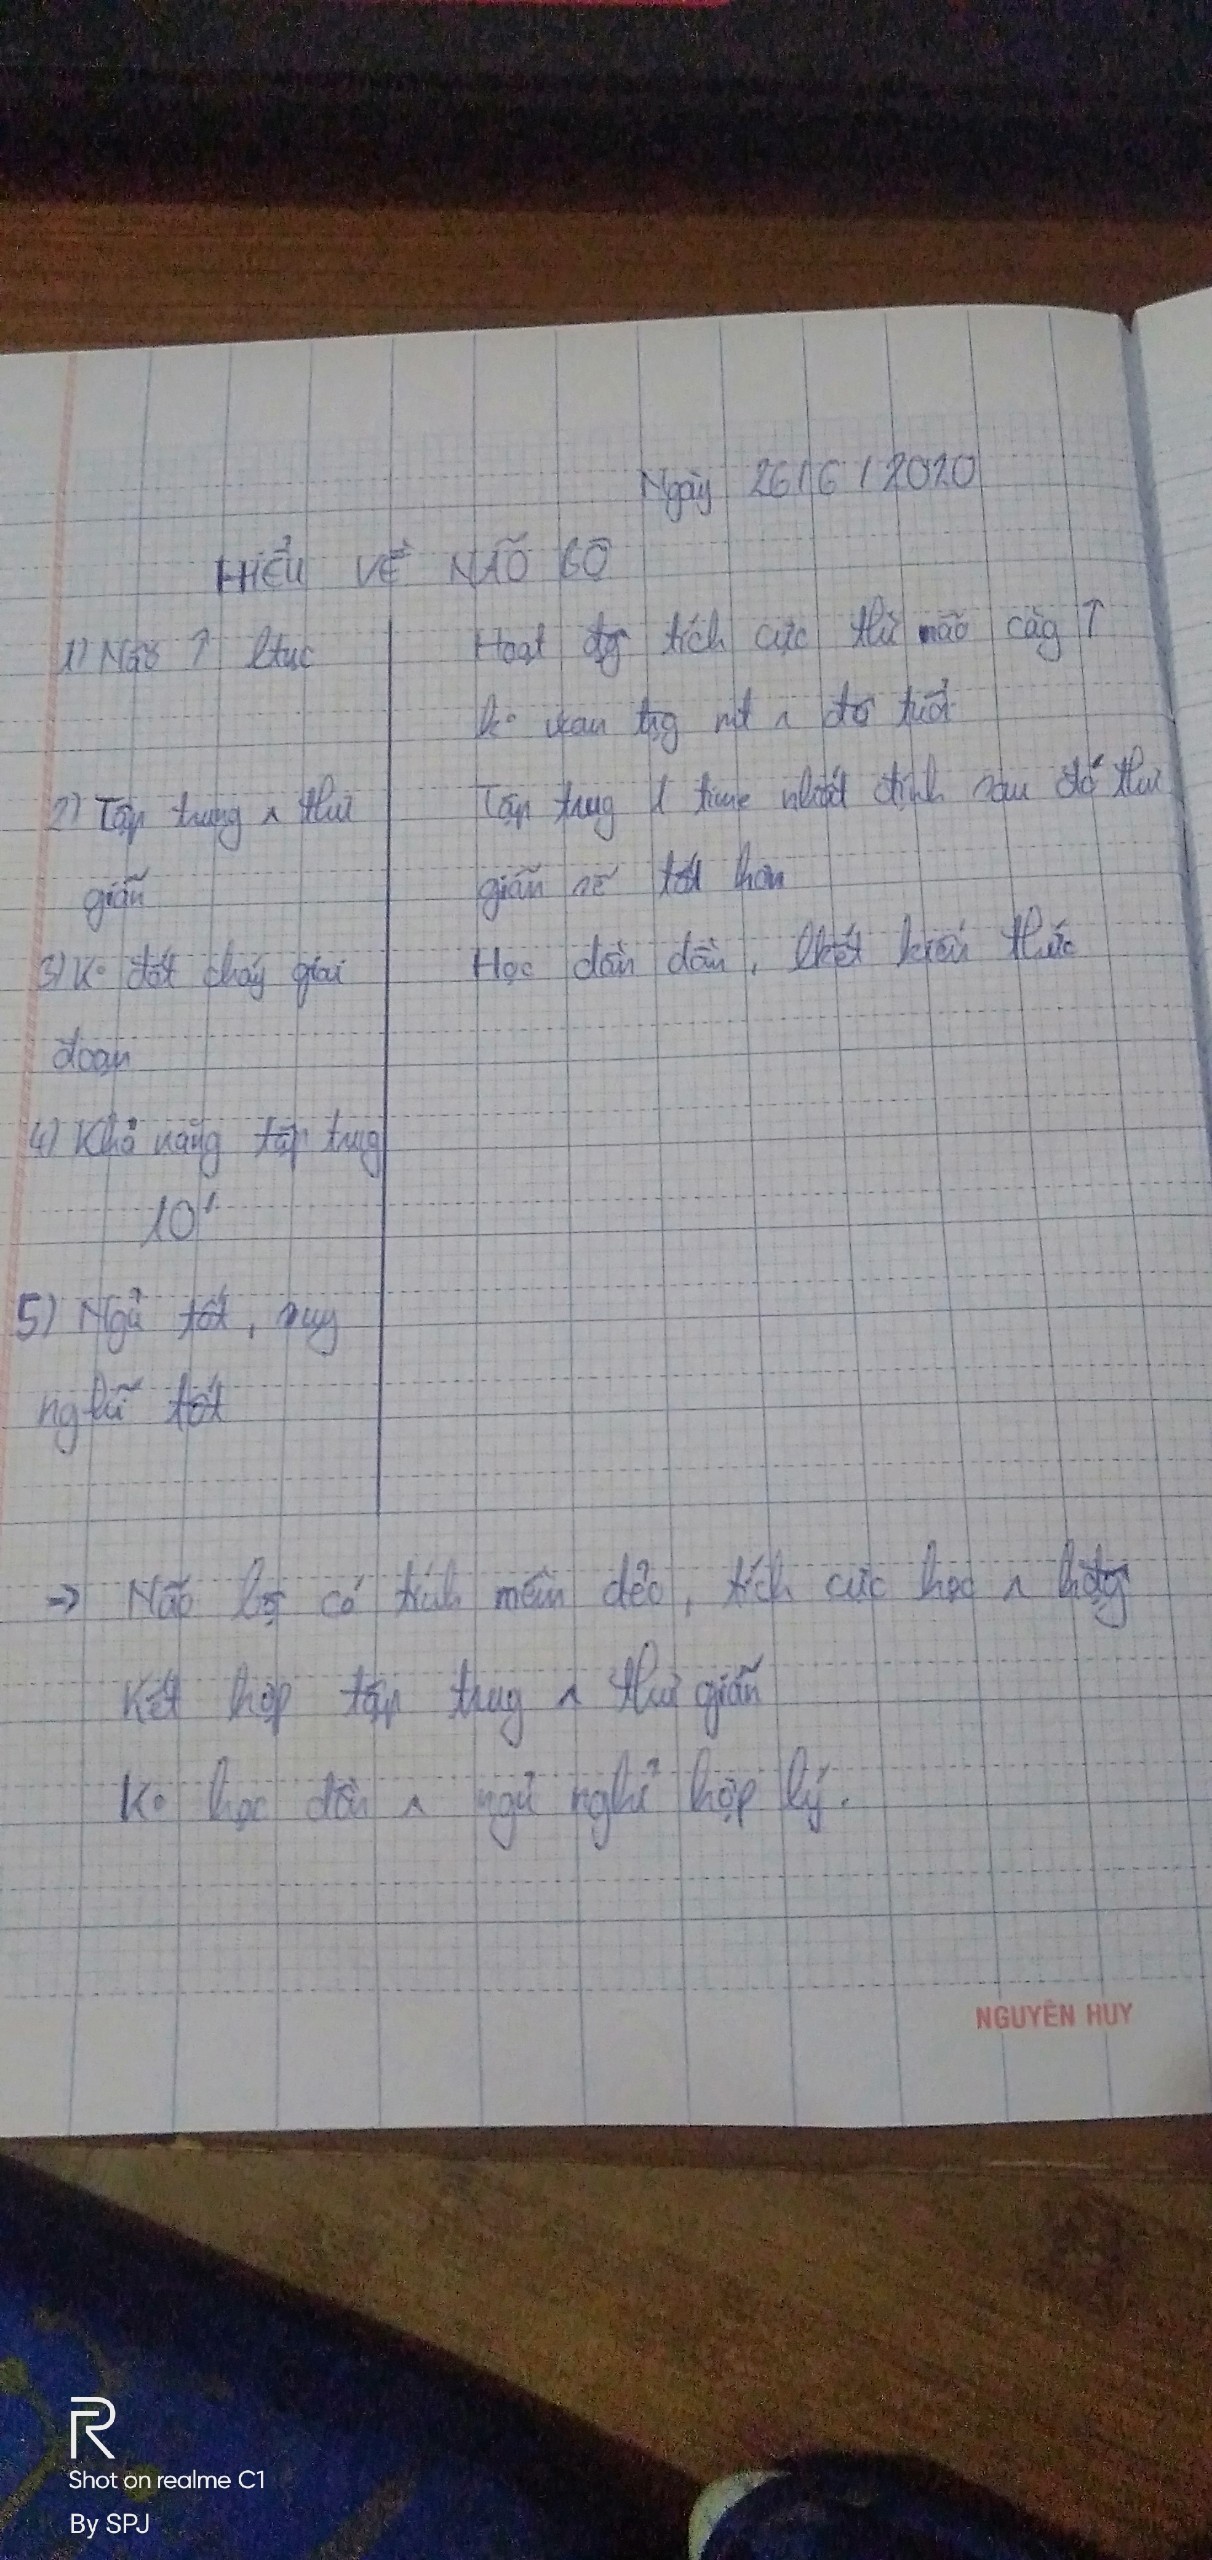 Ngày 26/6/2020
HIỂU VỀ NÃO BỘ
1) Não ↑ ltục
Hoạt độg tích cực thì não càg ↑
ko
độ tuổi
2) Tập trung ^ thư
giãn
Tập trug 1 time nhất định sau đó thư
giãn sẽ tốt hơn
3) Ko đốt cháy giai
đoạn
Học dần dần, lkết kiến thức
4) Khả năng tập trug
10'
5) Ngủ tốt, suy
nghĩ tốt
=> Não bộ có tính mềm dẻo, tích cực học ^ hđộg
Kết hợp tập trug ^ thư giãn
Ko học dồn ^ ngủ nghỉ hợp lý.
NGUYÊN HUY
R
Shot on realme C1
By SPJ